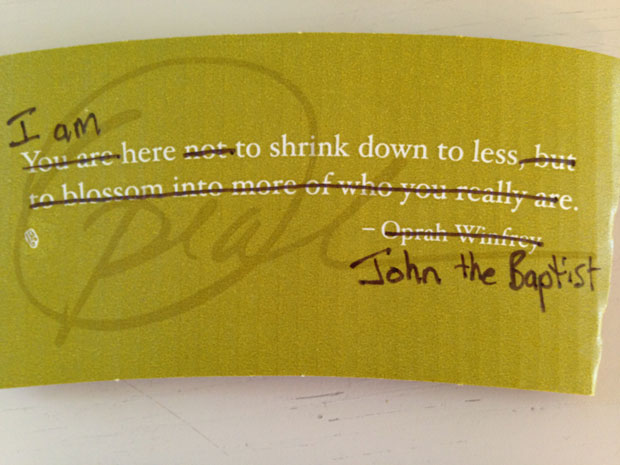 I am
You are here not to shrink down to less, but
to blossom into more of who you really are.
– Oprah Winfrey
John the Baptist
Oprah